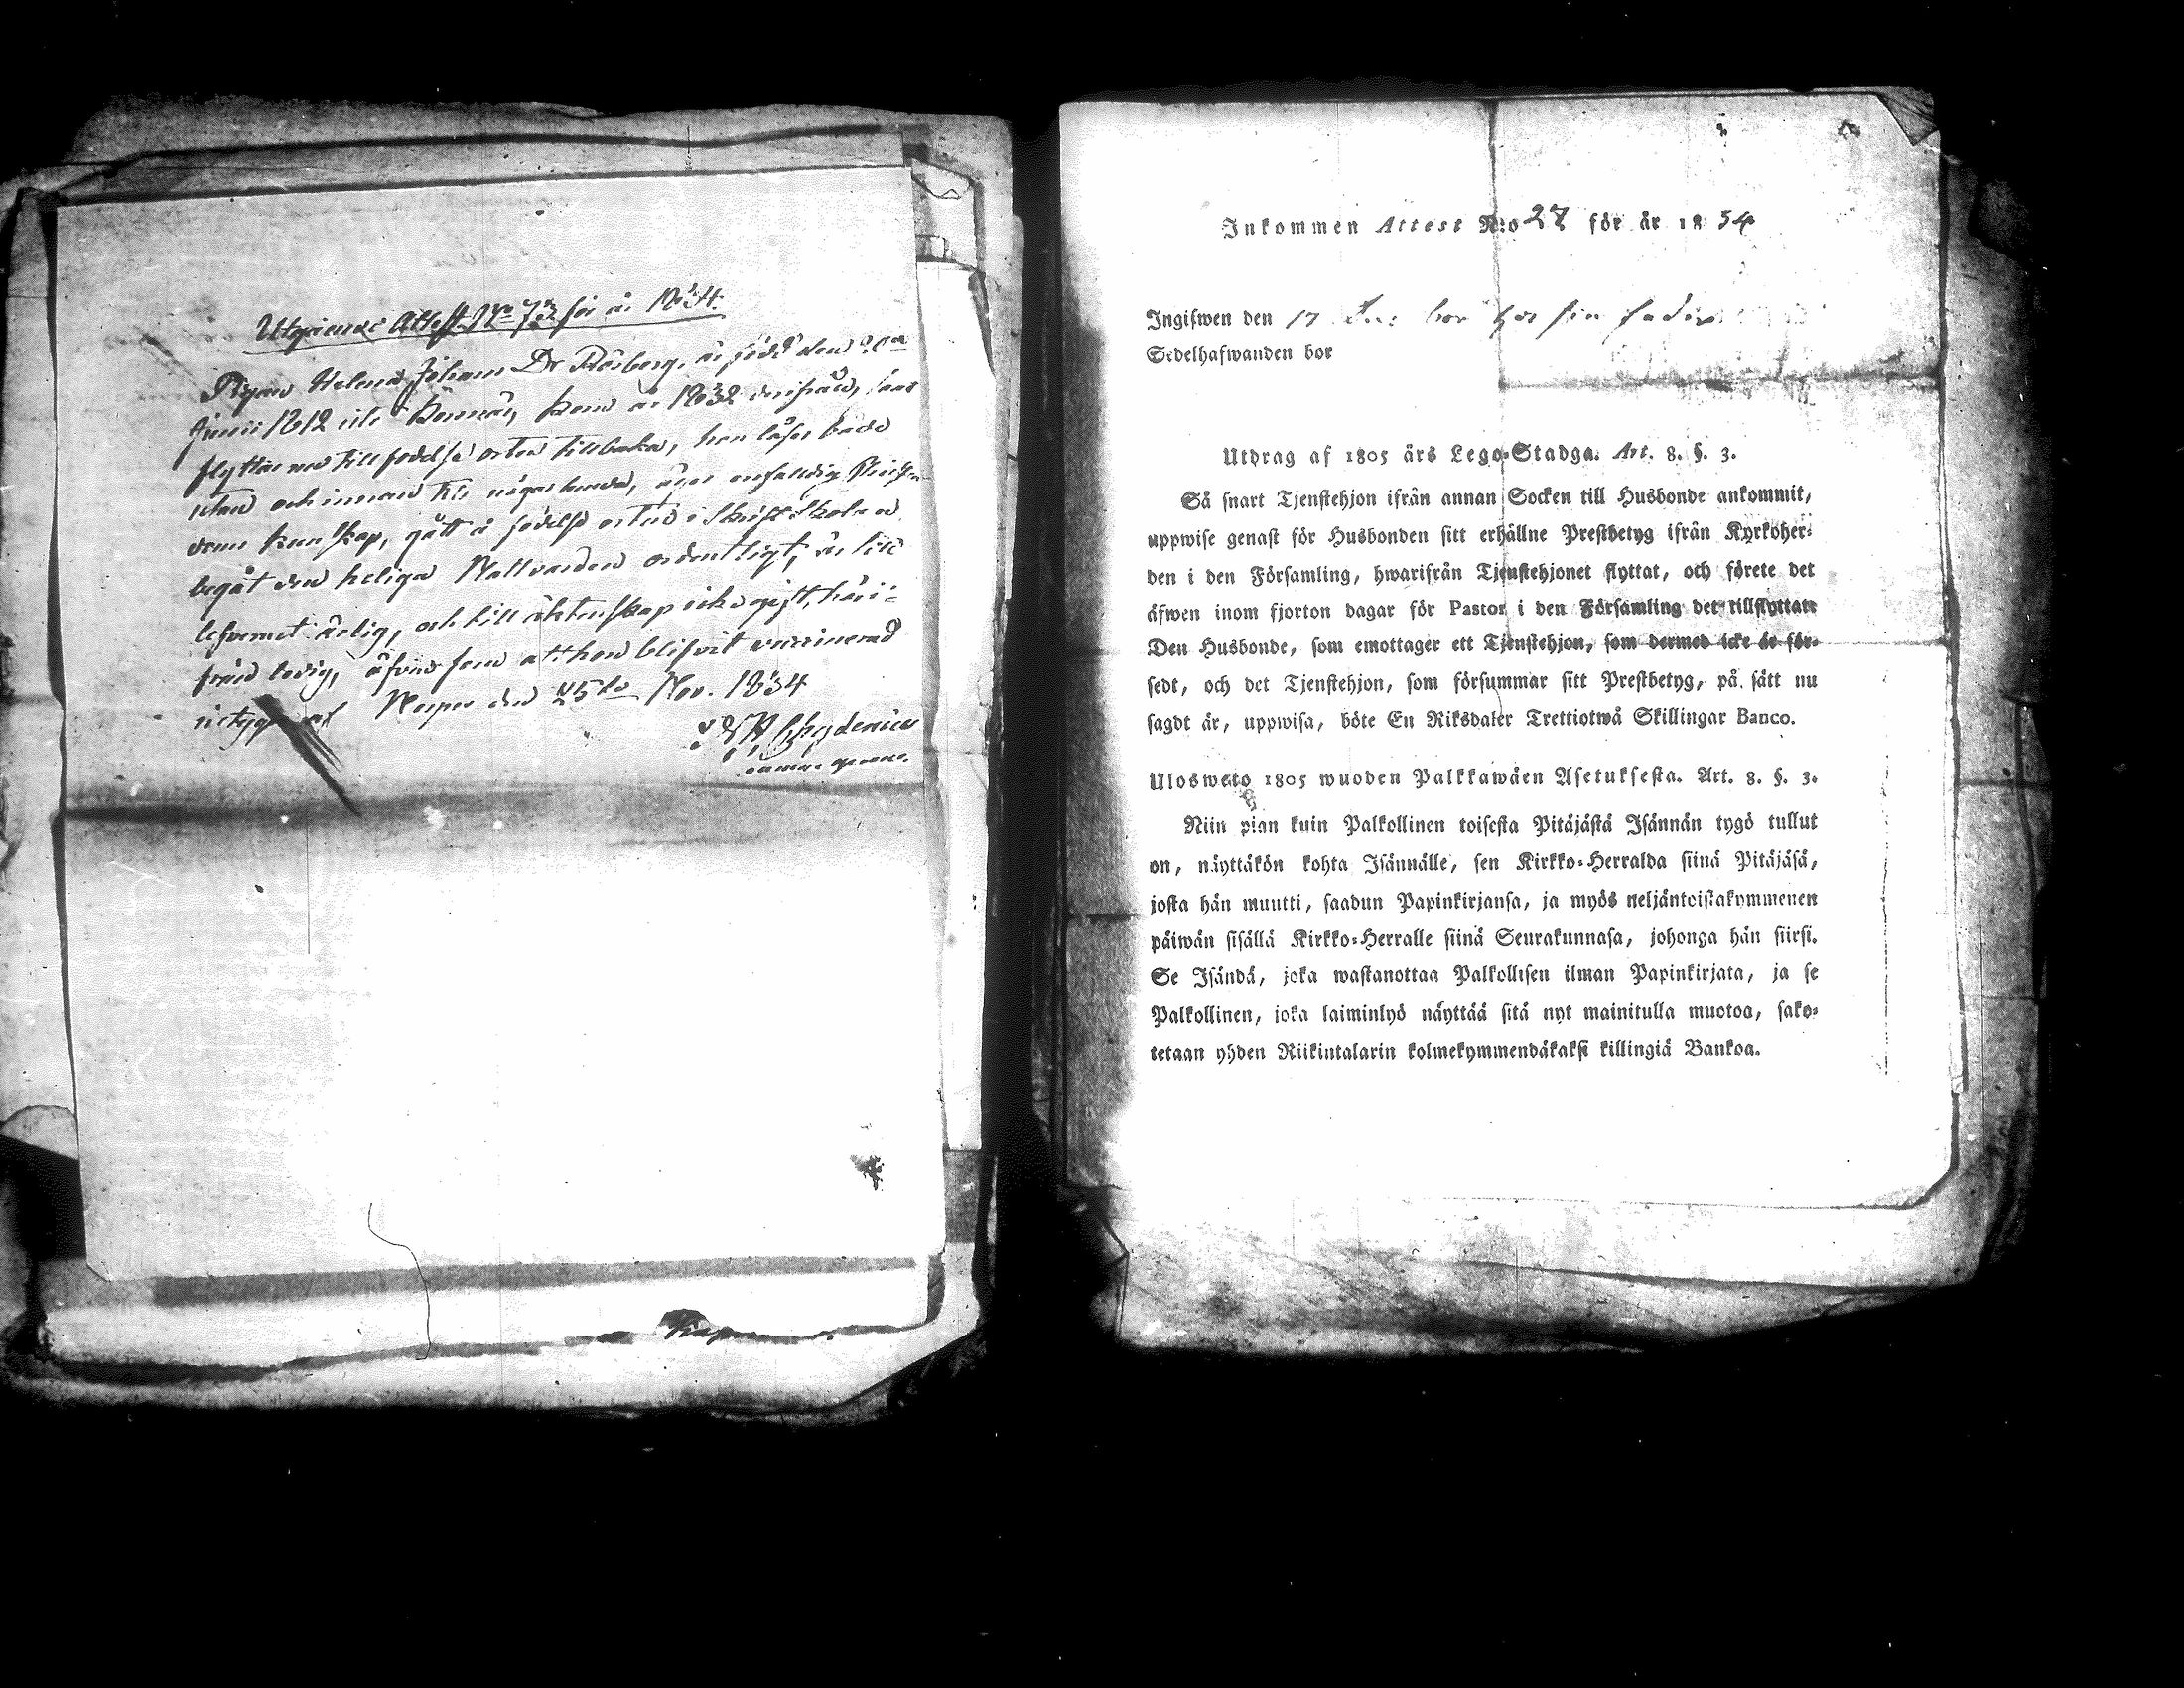 Attest No 73 för år 1834.
Pigan Helena Johans Dr Rosberg, är född den
Junii 1812 uti kom år 1832 derifrån, samt
flyttar nu till födelse orten tillbaka, hon läser både
utan och innan till nöjaktigt, äger enfaldig
doms kunskap, gått å födelse orten i Skrift Skola och
begåt den heliga Nattvarden ordentligt, är till
lefvernet ärlig, och till äktenskap icke gift, här i-
från ledig, äfven som att hon blifvit vaccinerad
betygar af Nerpes den 25te Nov. 1834
Chydenius
Inkommen Attest N:o 27 för år 1834
Ingifwen den 17 bor hos sin fader
Sedelhafwanden bor
Utdrag af 1805 års Lego-Stadga. Art. 8. §. 3.
Så snart Tjenstehjon ifrån annan Socken till Husbonde ankommit,
uppwise genast för Husbonden sitt erhållne Prestbetyg ifrån Kyrkoher-
den i den Församling, hwarifrån Tjenstehjonet flyttat, och förete det
äfwen inom fjorton dagar för Pastor i den Församling det tillflyttatt
Den Husbonde, som emottager ett Tjenstehjon, som dermed icke är för-
sedt, och det Tjenstehjon, som försummar sitt Prestbetyg, på sätt nu
sagdt är, uppwisa, böte En Riksdaler Trettiotwå Skillingar Banco.
Ulosweto 1805 wuoden Palkkawäen Asetuksesta. Art. 8. §. 3.
Niin pian kuin Palkollinen toisesta Pitäjästä Isännän tygö tullut
on, näyttäkön kohta Isännälle, sen Kirkko-Herralda siinä Pitäjäsä,
josta hän muutti, saadun Papinkirjansa, ja myös neljäntoistakymmenen
päiwän sisällä Kirkko-Herralle siinä Seurakunnasa, johonga hän siirsi.
Se Isändä, joka wastanottaa Palkollisen ilman Papinkirjata, ja se
Palkollinen, joka laiminlyö näyttää sitä nyt mainitulla muotoa, sako-
tetaan yhden Riikintalarin kolmekymmendäkaksi killingiä Bankoa.